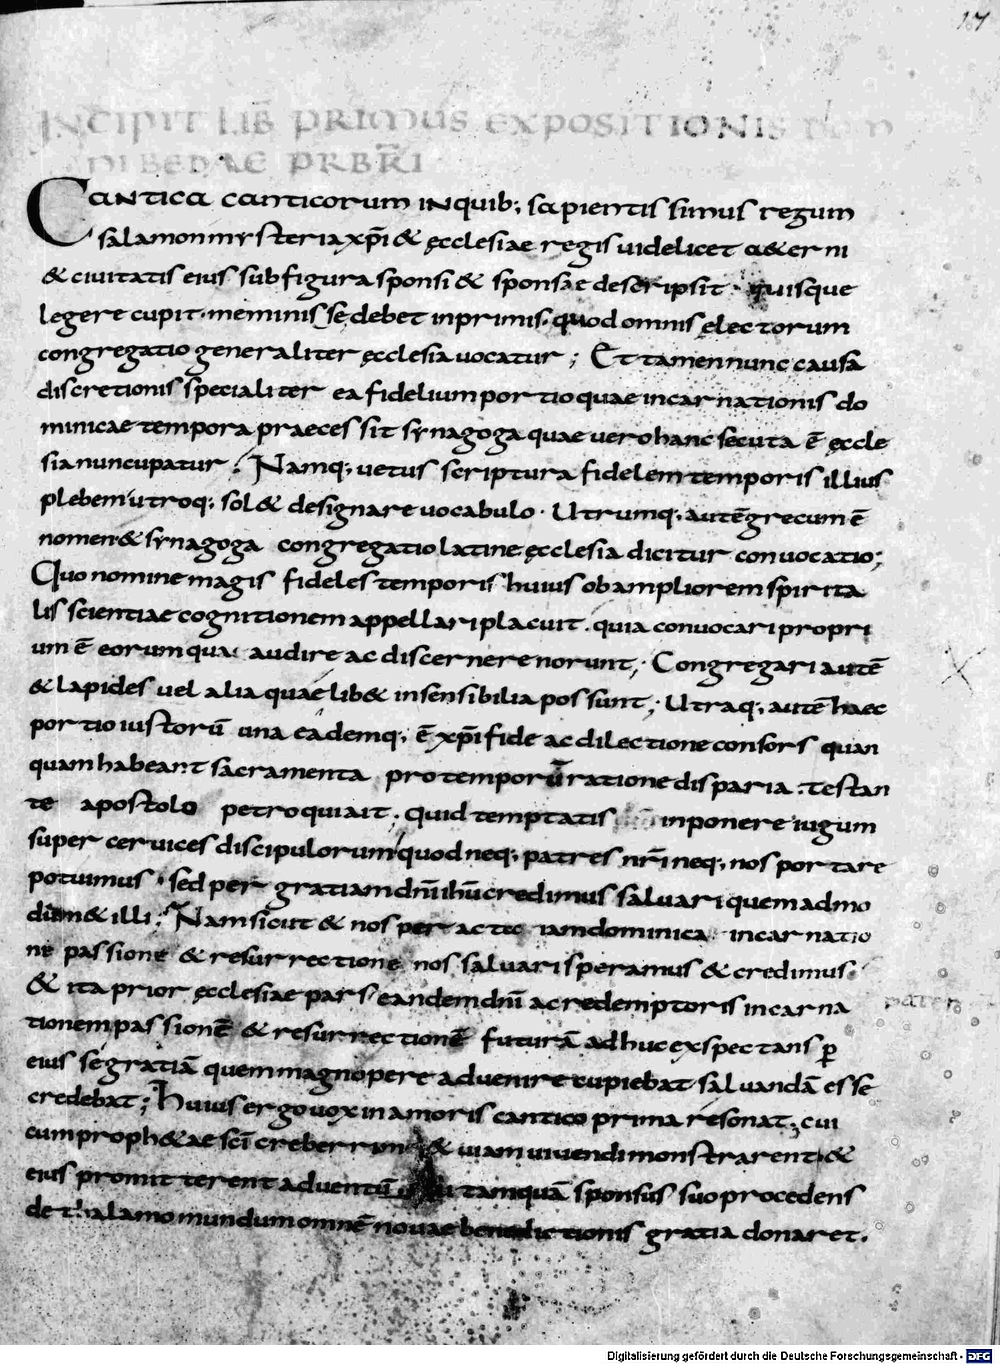 17
INCIPIT LIB̅ PRIMUS EXPOSITIONIS DOM
NI BEDAE PRB̅RI
Cantica canticorum inquib; sapientis simus regum
salamon mysteria xp̅i & ęcclesiae regis videlicet a&erni
& civitatis eius sub figura sponsi & sponsae descripsit · quisque
legere cupit · meminisse debet inprimis · quod omnis electorum
congregatio generaliter ęcclesia vocatur ; Et tamen nunc causa
discretionis specialiter ea fidelium portio quae incarnationis do
minicae tempora praecessit synagoga quae vero hanc secuta ē ęccle
sia nuncupatur ; Namq; vetus scriptura fidelem temporis illius
plebem utroq; sol& designare vocabulo · Utrumq; autē grecum ē
nomen & synagoga congregatio latine ęcclesia dicitur convocatio ;
Quo nomine magis fideles temporis huius ob ampliorem spirita
lis scientiae cognitionem appellari placuit · quia convocari propri
um ē eorum qua audire ac discernere norunt ; Congregari autē
& lapides vel alia quae lib& insensibilia possunt ; Utraq; autē haec
portio iustorū una eademq; ē xp̅i fide ac dilectione consors quan
quam habeant sacramenta pro temporū ratione disparia : testan
te apostolo petro qui ait ; quid temptatis inponere iugum
super cervices discipulorum quod neq; patres nr̅i neq; nos portare
potuimus · sed per gratiam dn̅i ih̅u credimus salvari quemadmo
dum & illi ; Nam sicut & nos peracta iam dominica incarnatio
ne passione & resurrectione nos salvari speramus & credimus
& ita prior ęcclesiae pars eandem dn̅i ac redemptoris incarna
tionem passionē & resurrectionē futurā adhuc exspectans p̱
eius se gratiā quem magnopere advenire cupiebat salvandā esse
credebat ; huius ergo vox in amoris cantico prima resonat ; cui
cum proph&ae sc̅i crebrerrime & viam vivendi monstrarent &
eius promitterent adventū tamquā sponsus suo procedens
de thalamo mundum omnē novae benedictionis gratia donaret .
Digitalisierung gefördert durch die Deutsche Forschungsgemeinschaft - DFG